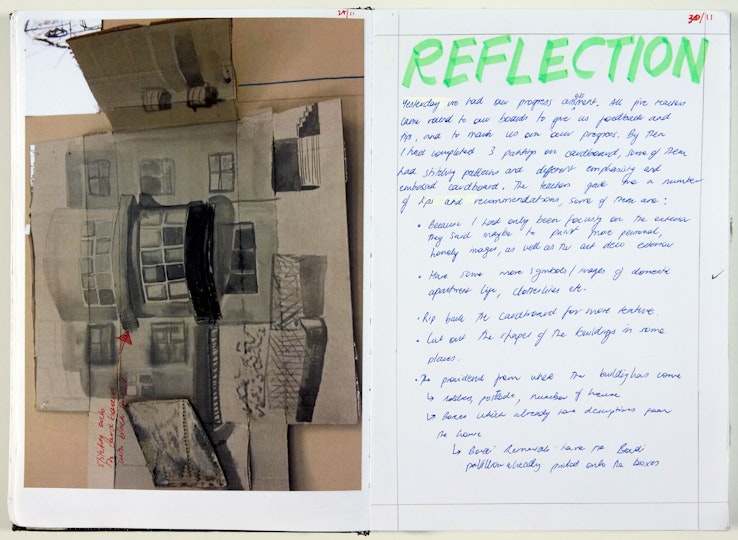 29/11
stitching onto
the cardboard
with black
30/11
REFLECTION
Yesterday we had our progress assment. All five teachers
came round to our boards to give us feedback and
tips, and to mark us on our progress. By then
I had completed 3 paintings on cardboard, some of them
had stitching patterns and different emphasisy and
embossed cardboard. The teachers gave me a number
of tips and recommendations, some of them are:
• Because I had only been focusing on the exterior
they said maybe to paint more personal,
homely images, as well as the art deco exterior
• Have some more symbols/images of domestic
apartment life, clotheslines etc.
• Rip back the cardboard for more texture.
• Cut out the shapes of the buildings in some
places.
• The from where the building has come
↳ address, postcode, number of house
↳ Boxes which already have descriptions from
the home
↳ Bondi Removals have the Bondi
pavillion already printed onto the boxes